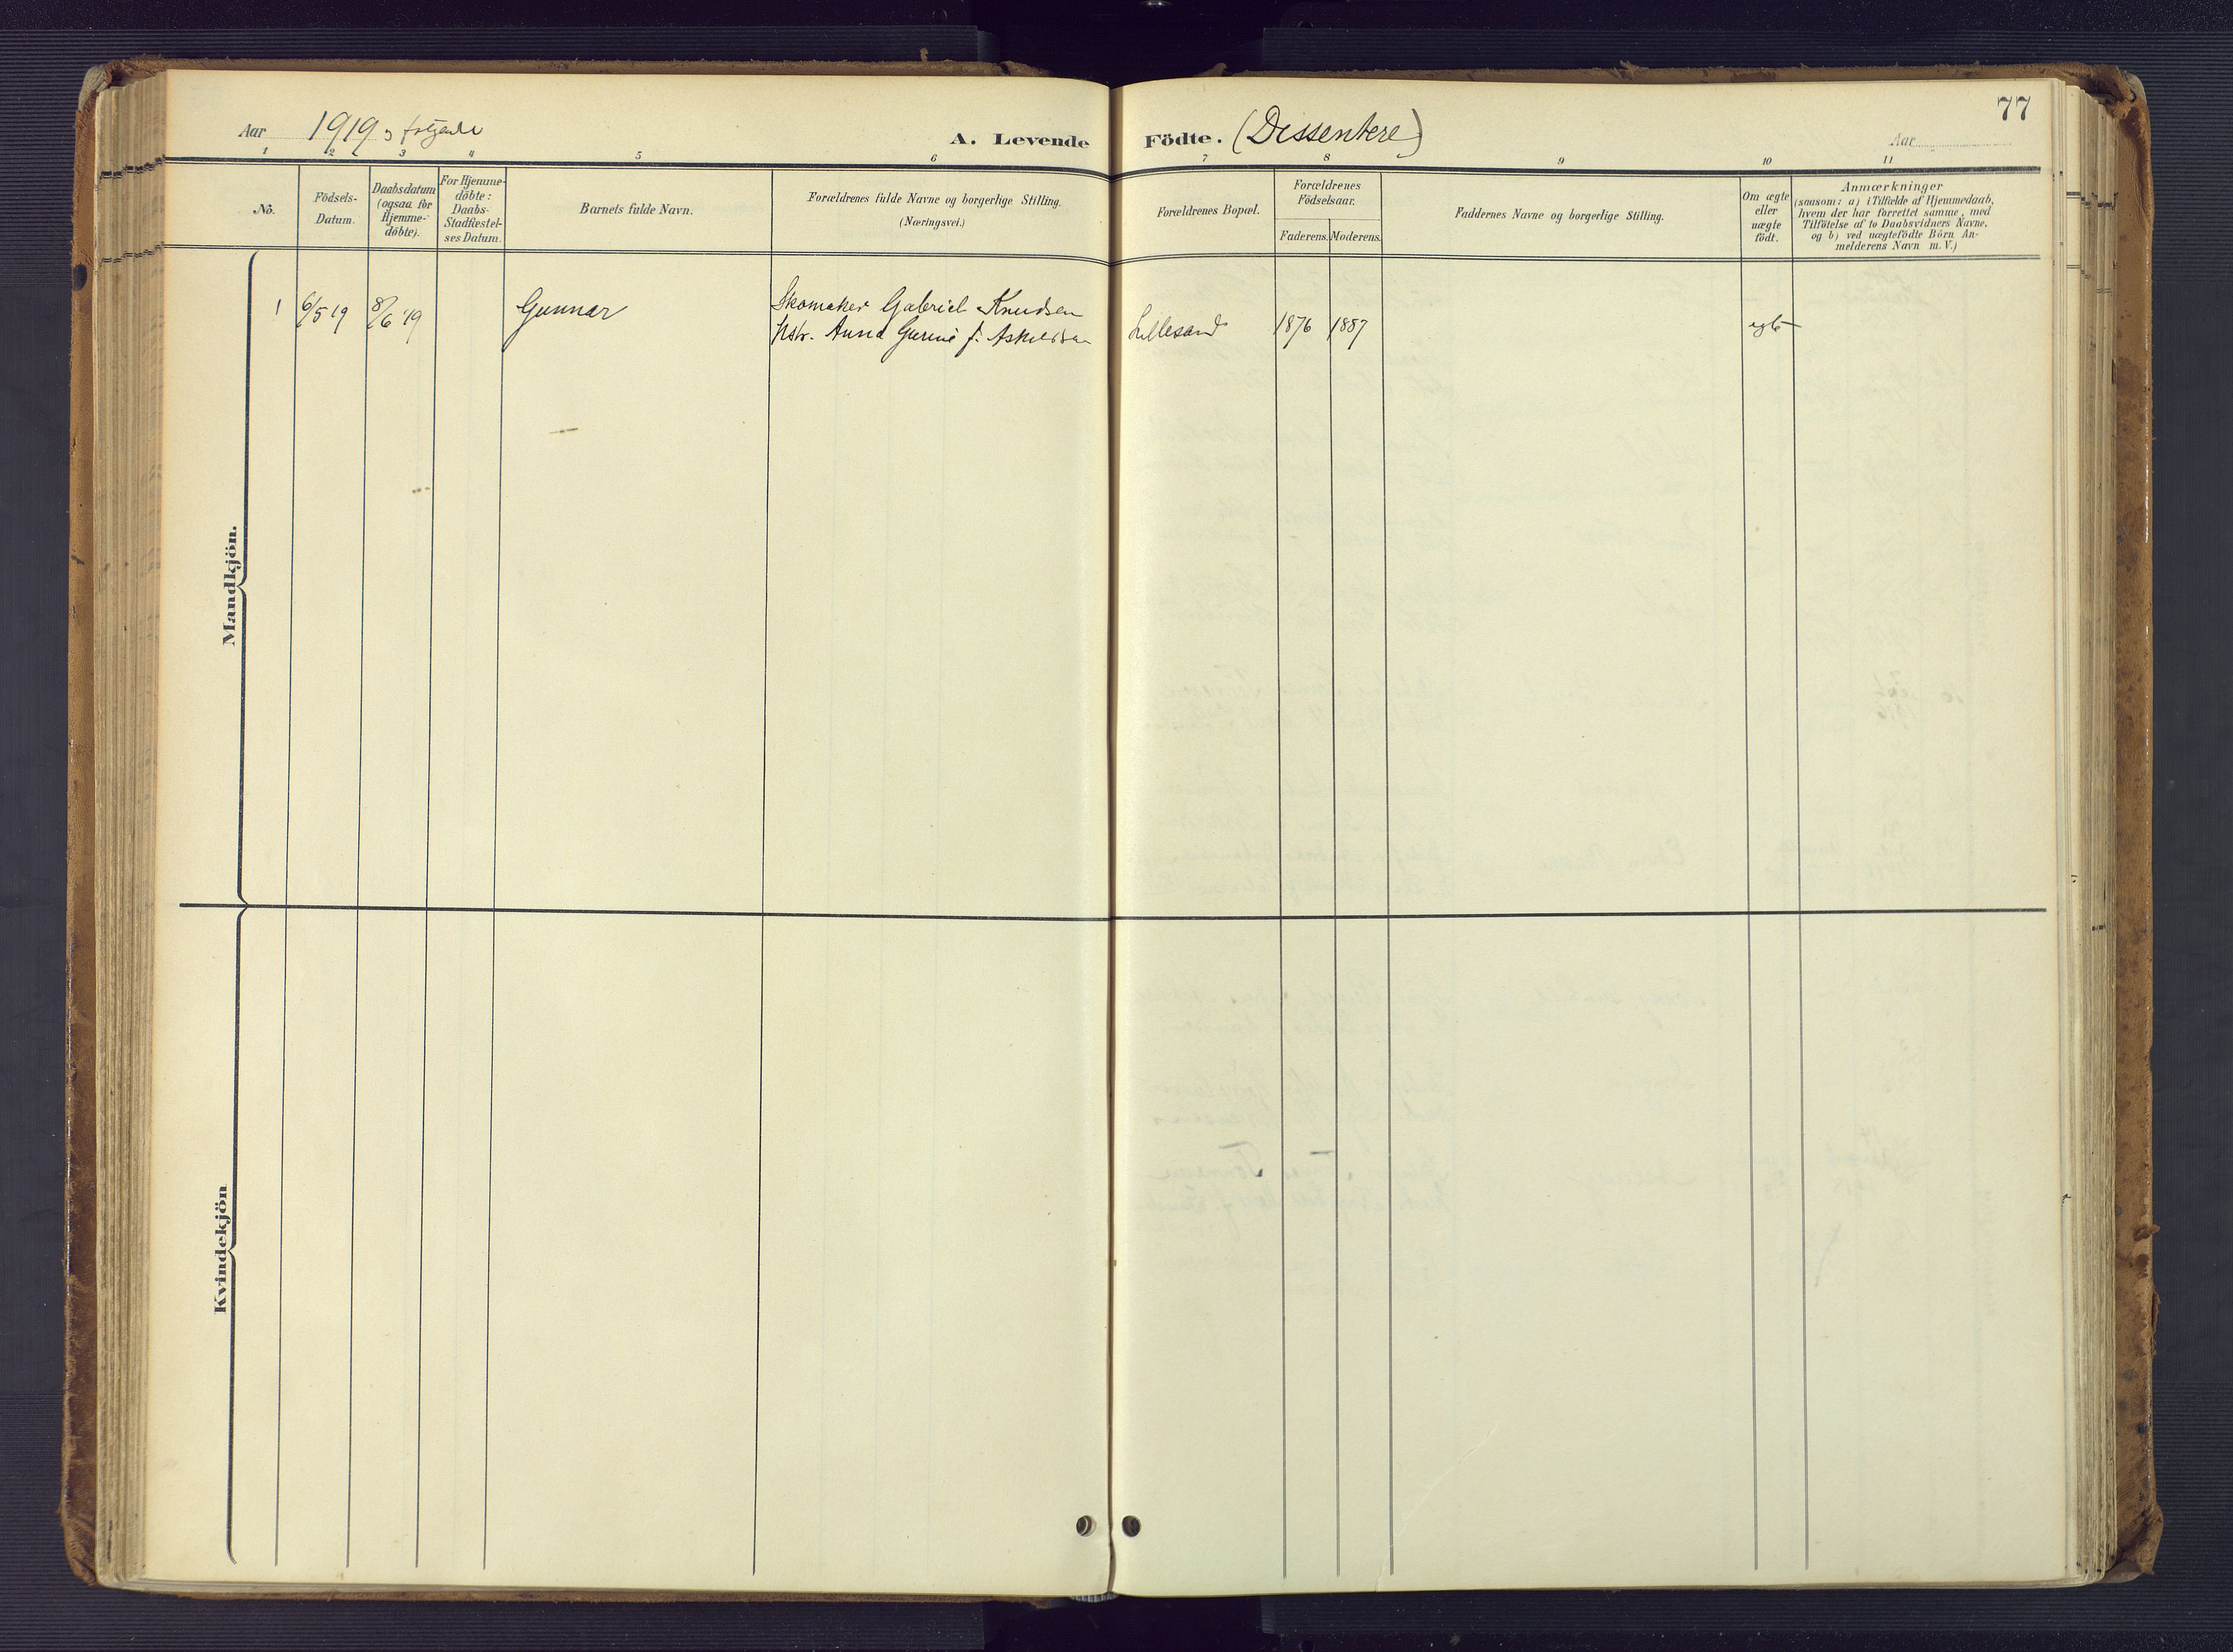 77
Aar 1919 og følgende
A. Levende Födte. (Dissentere)
Aar
1 2 3 4 5 6 7 8 9 10 11
No.
Födsels-
Datum.
Daabsdatum
(ogsaa for
Hjemme-
döbte).
For Hjemme-
döbte:
Daabs-
Stadfæstel-
ses Datum.
Barnets fulde Navn.
Forældrenes fulde Navne og borgerlige Stilling.
(Næringsvei.)
Forældrenes Bopæl.
Forældrenes
Födselsaar.
Faderens. Moderens.
Faddernes Navne og borgerlige Stilling.
Om ægte
eller
uægte
födt.
Anmærkninger
(saasom: a) i Tilfælde af Hjemmedaab,
hvem der har forrettet samme, med
Tilföielse af to Daabsvidners Navne,
og b) ved uægtefödte Börn An-
melderens Navn m. V.)
Mandkjön.
1 6/5 19 8/6 19 Gunnar
Skomaker Gabriel Knudsen
Hstr. Anna Gurine f. Askeldsen
Lillesand 1876 1887 egte
Kvindekjön